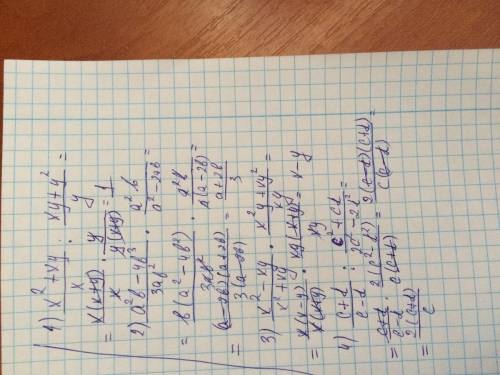 1) (x² + xy)/x : (xy + y²)/y =
= x(x+y)/x · y/y(x+y) = 1
2) (a²b - 4b³)/3ab² · a²b/(a² - 2ab) =
= b(a² - 4b²)/3ab² · a²b/a(a-2b) =
= (a-2b)(a+2b)/3(a-2b) = (a+2b)/3
3) (x² - xy)/(x² + xy) · (x²y + xy²)/xy =
= x(x-y)/x(x+y) · xy(x+y)/xy = x-y
4) (c+d)/(c-d) : (c² + cd)/(2c² - 2d²) =
= (c+d)/(c-d) · 2(c² - d²)/c(c+d) = 2(c-d)(c+d)/c(c-d) =
= 2(c+d)/c